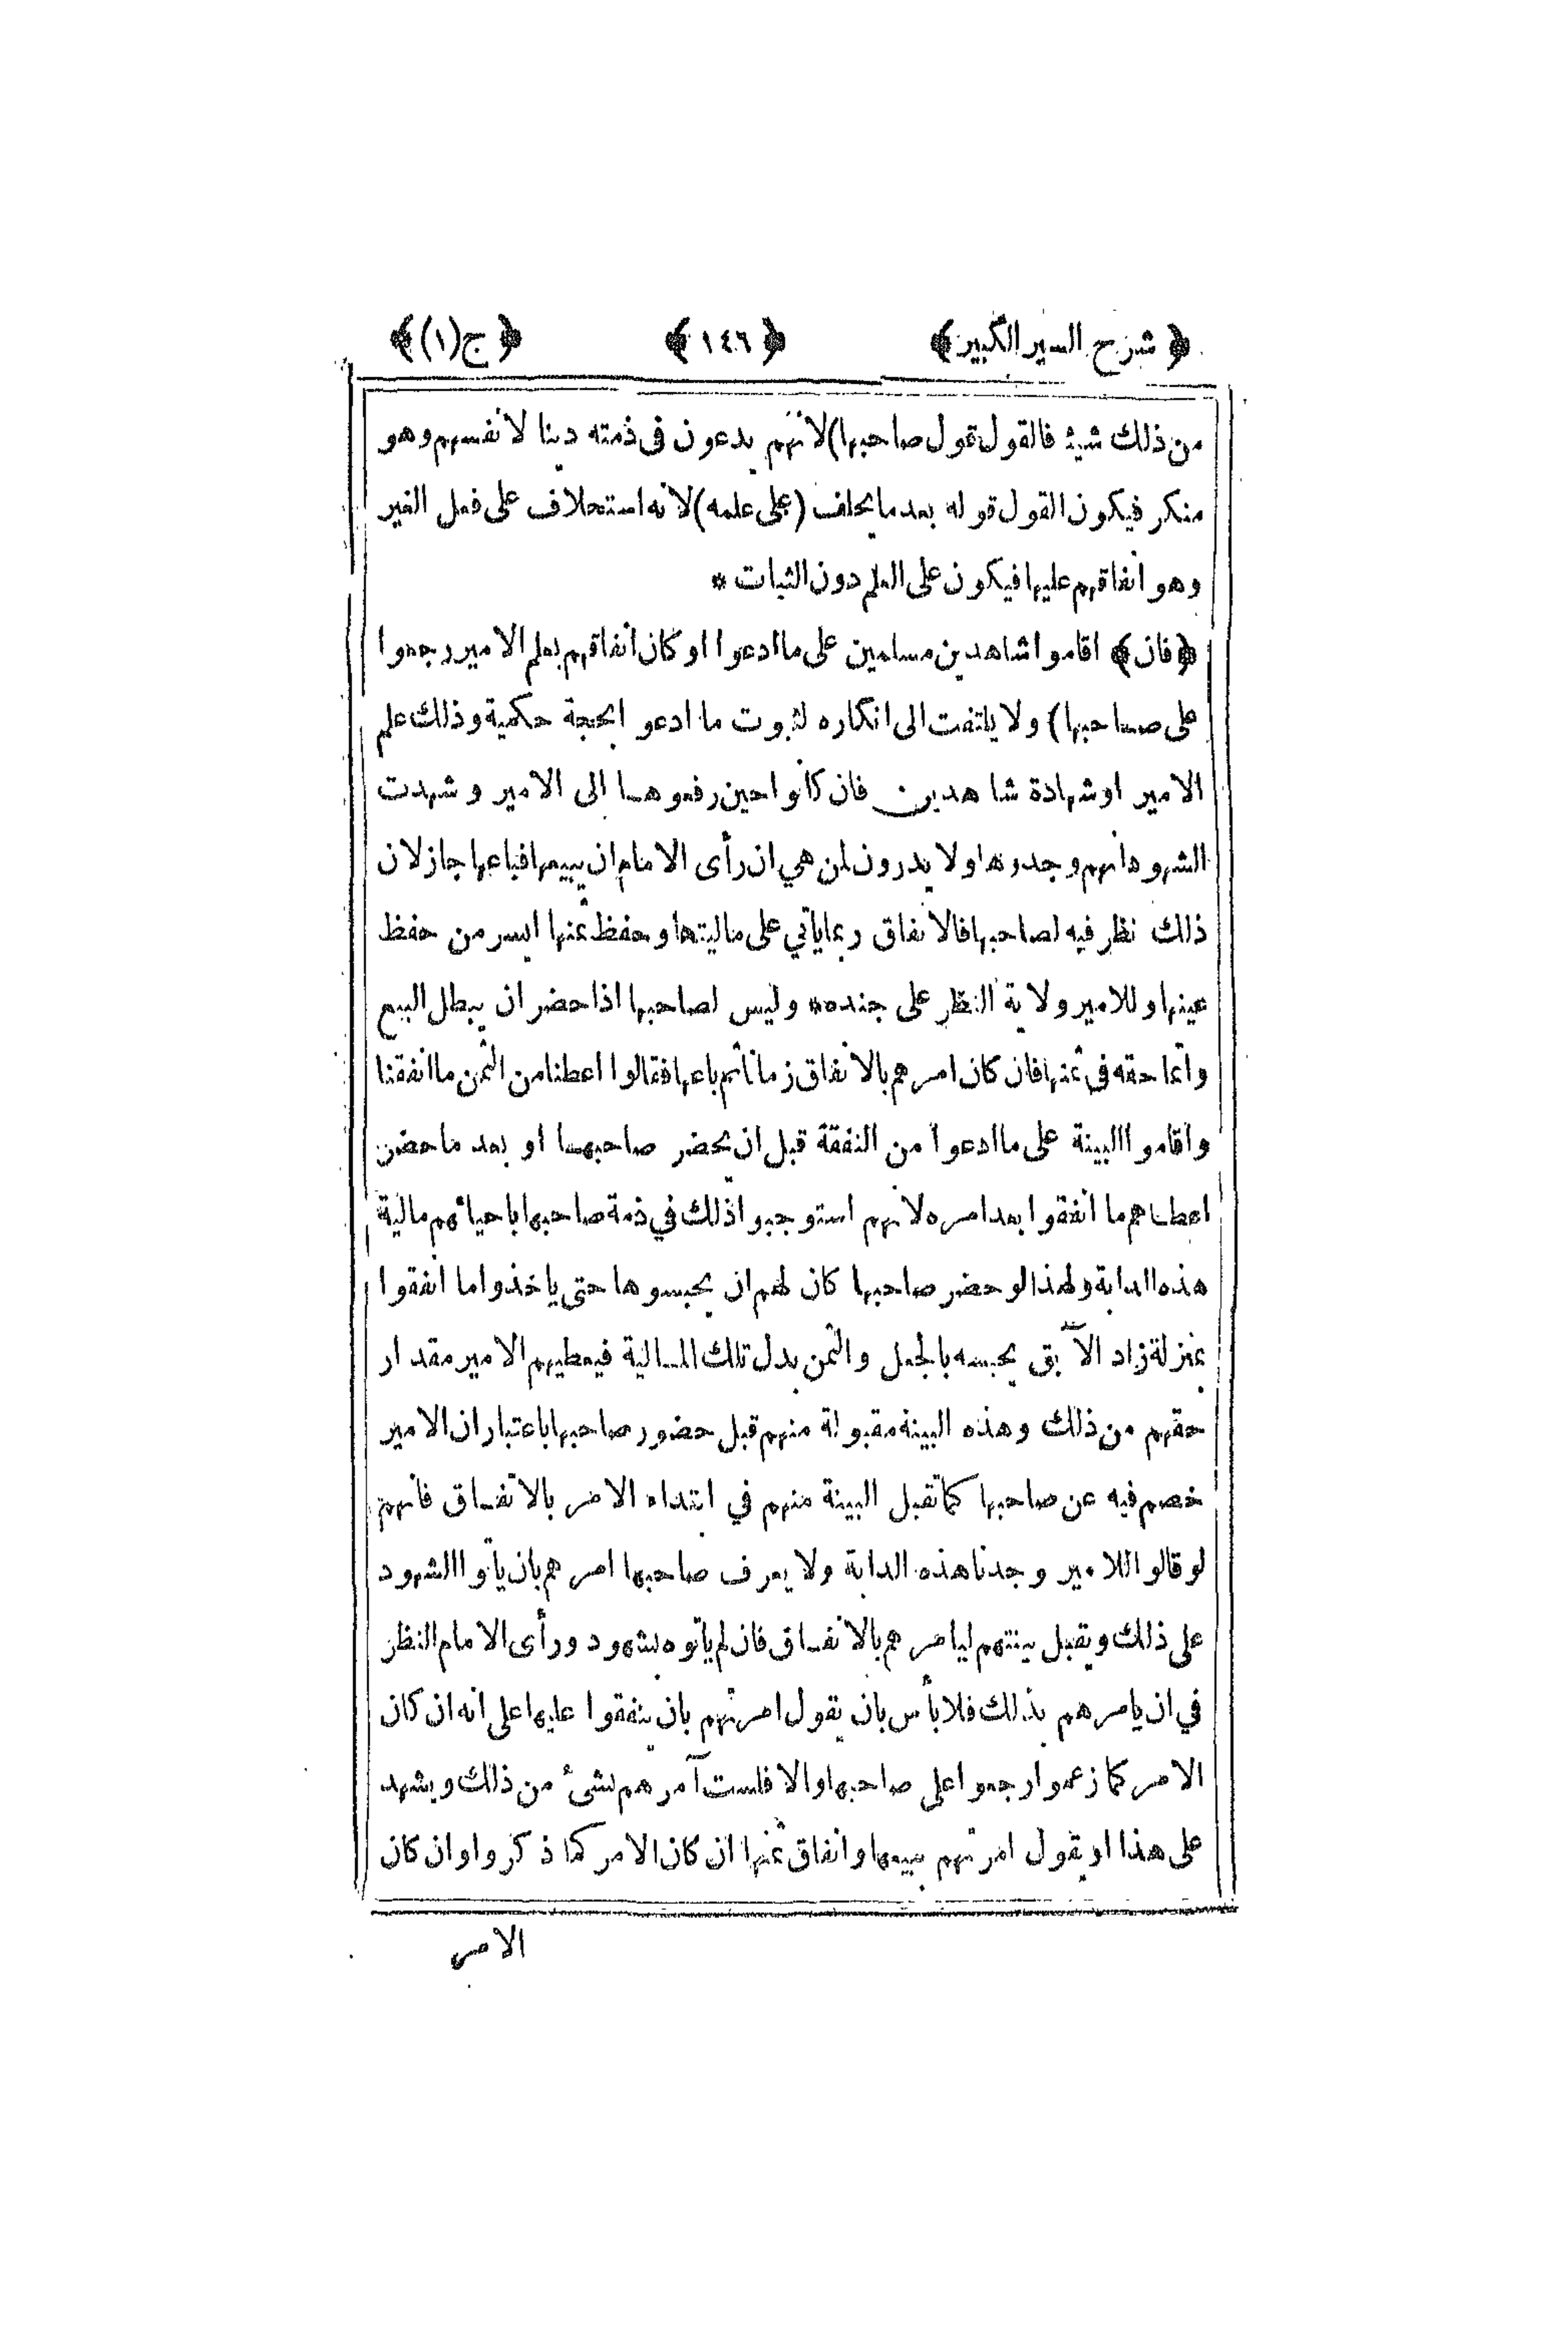 ﴿ شرح السير الكبير ﴾ ﴿ ١٤٦ ﴾ ﴿ ج (١) ﴾
من ذلك شيئ فالقول قول صاحبها) لانهم يدعون فى ذمته دينا لانفسهم وهو
منكر فيكون القول قوله بعد ما يحلف (على علمه) لانه استحلاف على فعل الغير
وهو انفاقهم عليها فيكون على العلم دون الثبات *
﴿ فان ﴾ اقاموا شاهدين مسلمين على ما ادعوا او كان انفاقهم بعلم الامير رجعوا
على صاحبها) ولا يلتفت الى انكاره لثبوت ما ادعوا بحجة حكمية وذلك علم
الامير او شهادة شاهدين فان كانوا حين رفعوها الى الامير وشهدت
الشهود انهم وجدوها ولا يدرون لمن هي ان رأى الامام ان يبيعها فباعها جاز لان
ذلك نظر فيه لصاحبها فالانفاق ربما يأتي على ماليتها وحفظ ثمنها ايسر من حفظ
عينها وللامير ولاية النظر على جنده * وليس لصاحبها اذا حضر ان يبطل البيع
وانما حقه في ثمنها فان كان امرهم بالانفاق زمانا ثم باعها فقالوا اعطنا من الثمن ما انفقنا
واقاموا البينة على ما ادعوا من النفقة قبل ان يحضر صاحبها او بعد ما حضر
اعطاهم ما انفقوا بعد امره لانهم استوجبوا ذلك في ذمة صاحبها باحيائهم مالية
هذه الدابة ولهذا لو حضر صاحبها كان لهم ان يحبسوها حتى ياخذوا ما انفقوا
بمنزلة زاد الآبق يحبسه بالجعل والثمن بدل تلك المالية فيعطيهم الامير مقدار
حقهم من ذلك وهذه البينة مقبولة منهم قبل حضور صاحبها باعتبار ان الامير
خصم فيه عن صاحبها كما تقبل البينة منهم في ابتداء الامر بالانفاق فانهم
لو قالوا للامير وجدنا هذه الدابة ولا يعرف صاحبها امرهم بان يأتوا الشهود
على ذلك ويقبل بينتهم ليامرهم بالانفاق فان لم يأتوه بشهود ورأى الامام النظر
في ان يامرهم بذلك فلا بأس بان يقول امرتهم بان ينفقوا عليها على انه ان كان
الامر كما زعموا رجعوا على صاحبها والا فلست آمرهم بشئ من ذلك ويشهد
على هذا او يقول امرتهم ببيعها وانفاق ثمنها ان كان الامر كما ذكروا وان كان
الامر